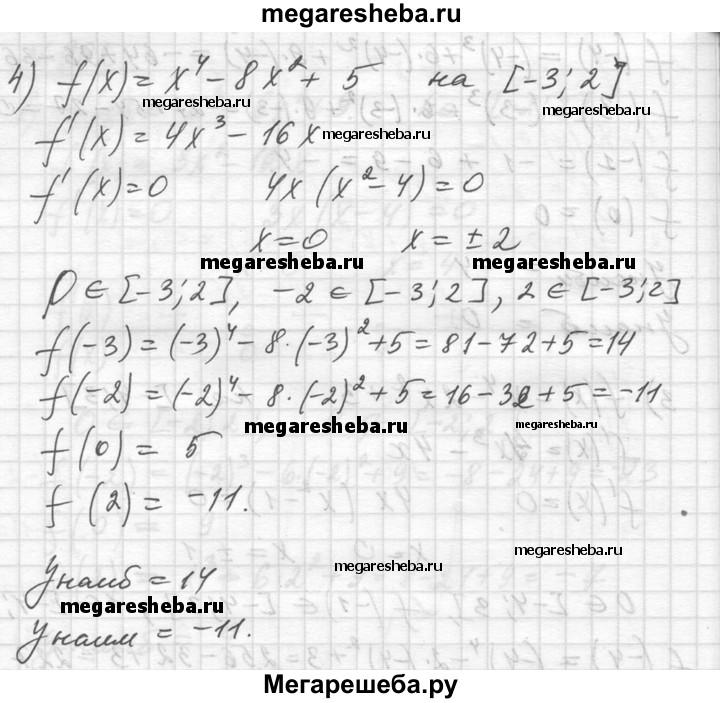 megaresheba.ru
4) f(x) = x⁴ - 8x² + 5 на [-3; 2]
megaresheba.ru
megaresheba.ru
f'(x) = 4x³ - 16x
megaresheba.ru
f'(x) = 0 4x(x² - 4) = 0
x = 0 x = ± 2
megaresheba.ru megaresheba.ru
0 ∈ [-3; 2], -2 ∈ [-3; 2], 2 ∈ [-3; 2]
f(-3) = (-3)⁴ - 8·(-3)² + 5 = 81 - 72 + 5 = 14
f(-2) = (-2)⁴ - 8·(-2)² + 5 = 16 - 32 + 5 = -11
megaresheba.ru megaresheba.ru
f(0) = 5
f(2) = -11.
megaresheba.ru
megaresheba.ru
yнаиб = 14
megaresheba.ru
yнаим = -11.
Мегарешеба.ру